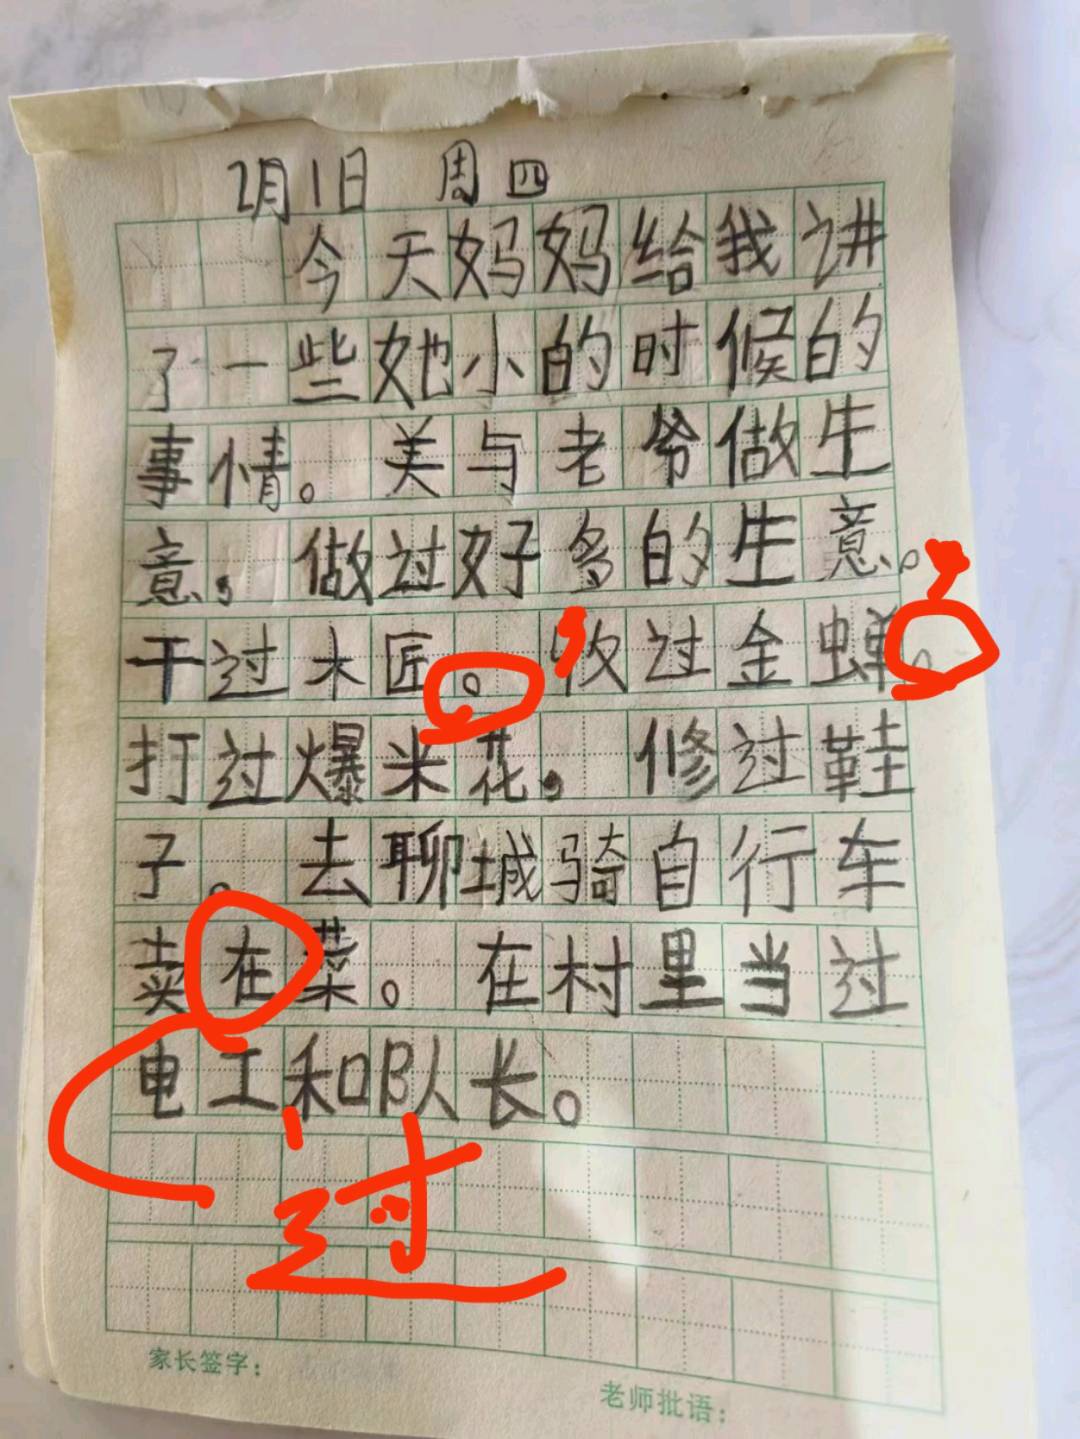 2月1日 周四
今天妈妈给我讲
了一些她小的时候的
事情。美与老爷做生
意，做过好多的生意。
干过木匠。收过金蝉。
，
，
打过爆米花，修过鞋
子。去聊城骑自行车
卖在菜。在村里当过
电工和队长。
过
家长签字：
老师批语：